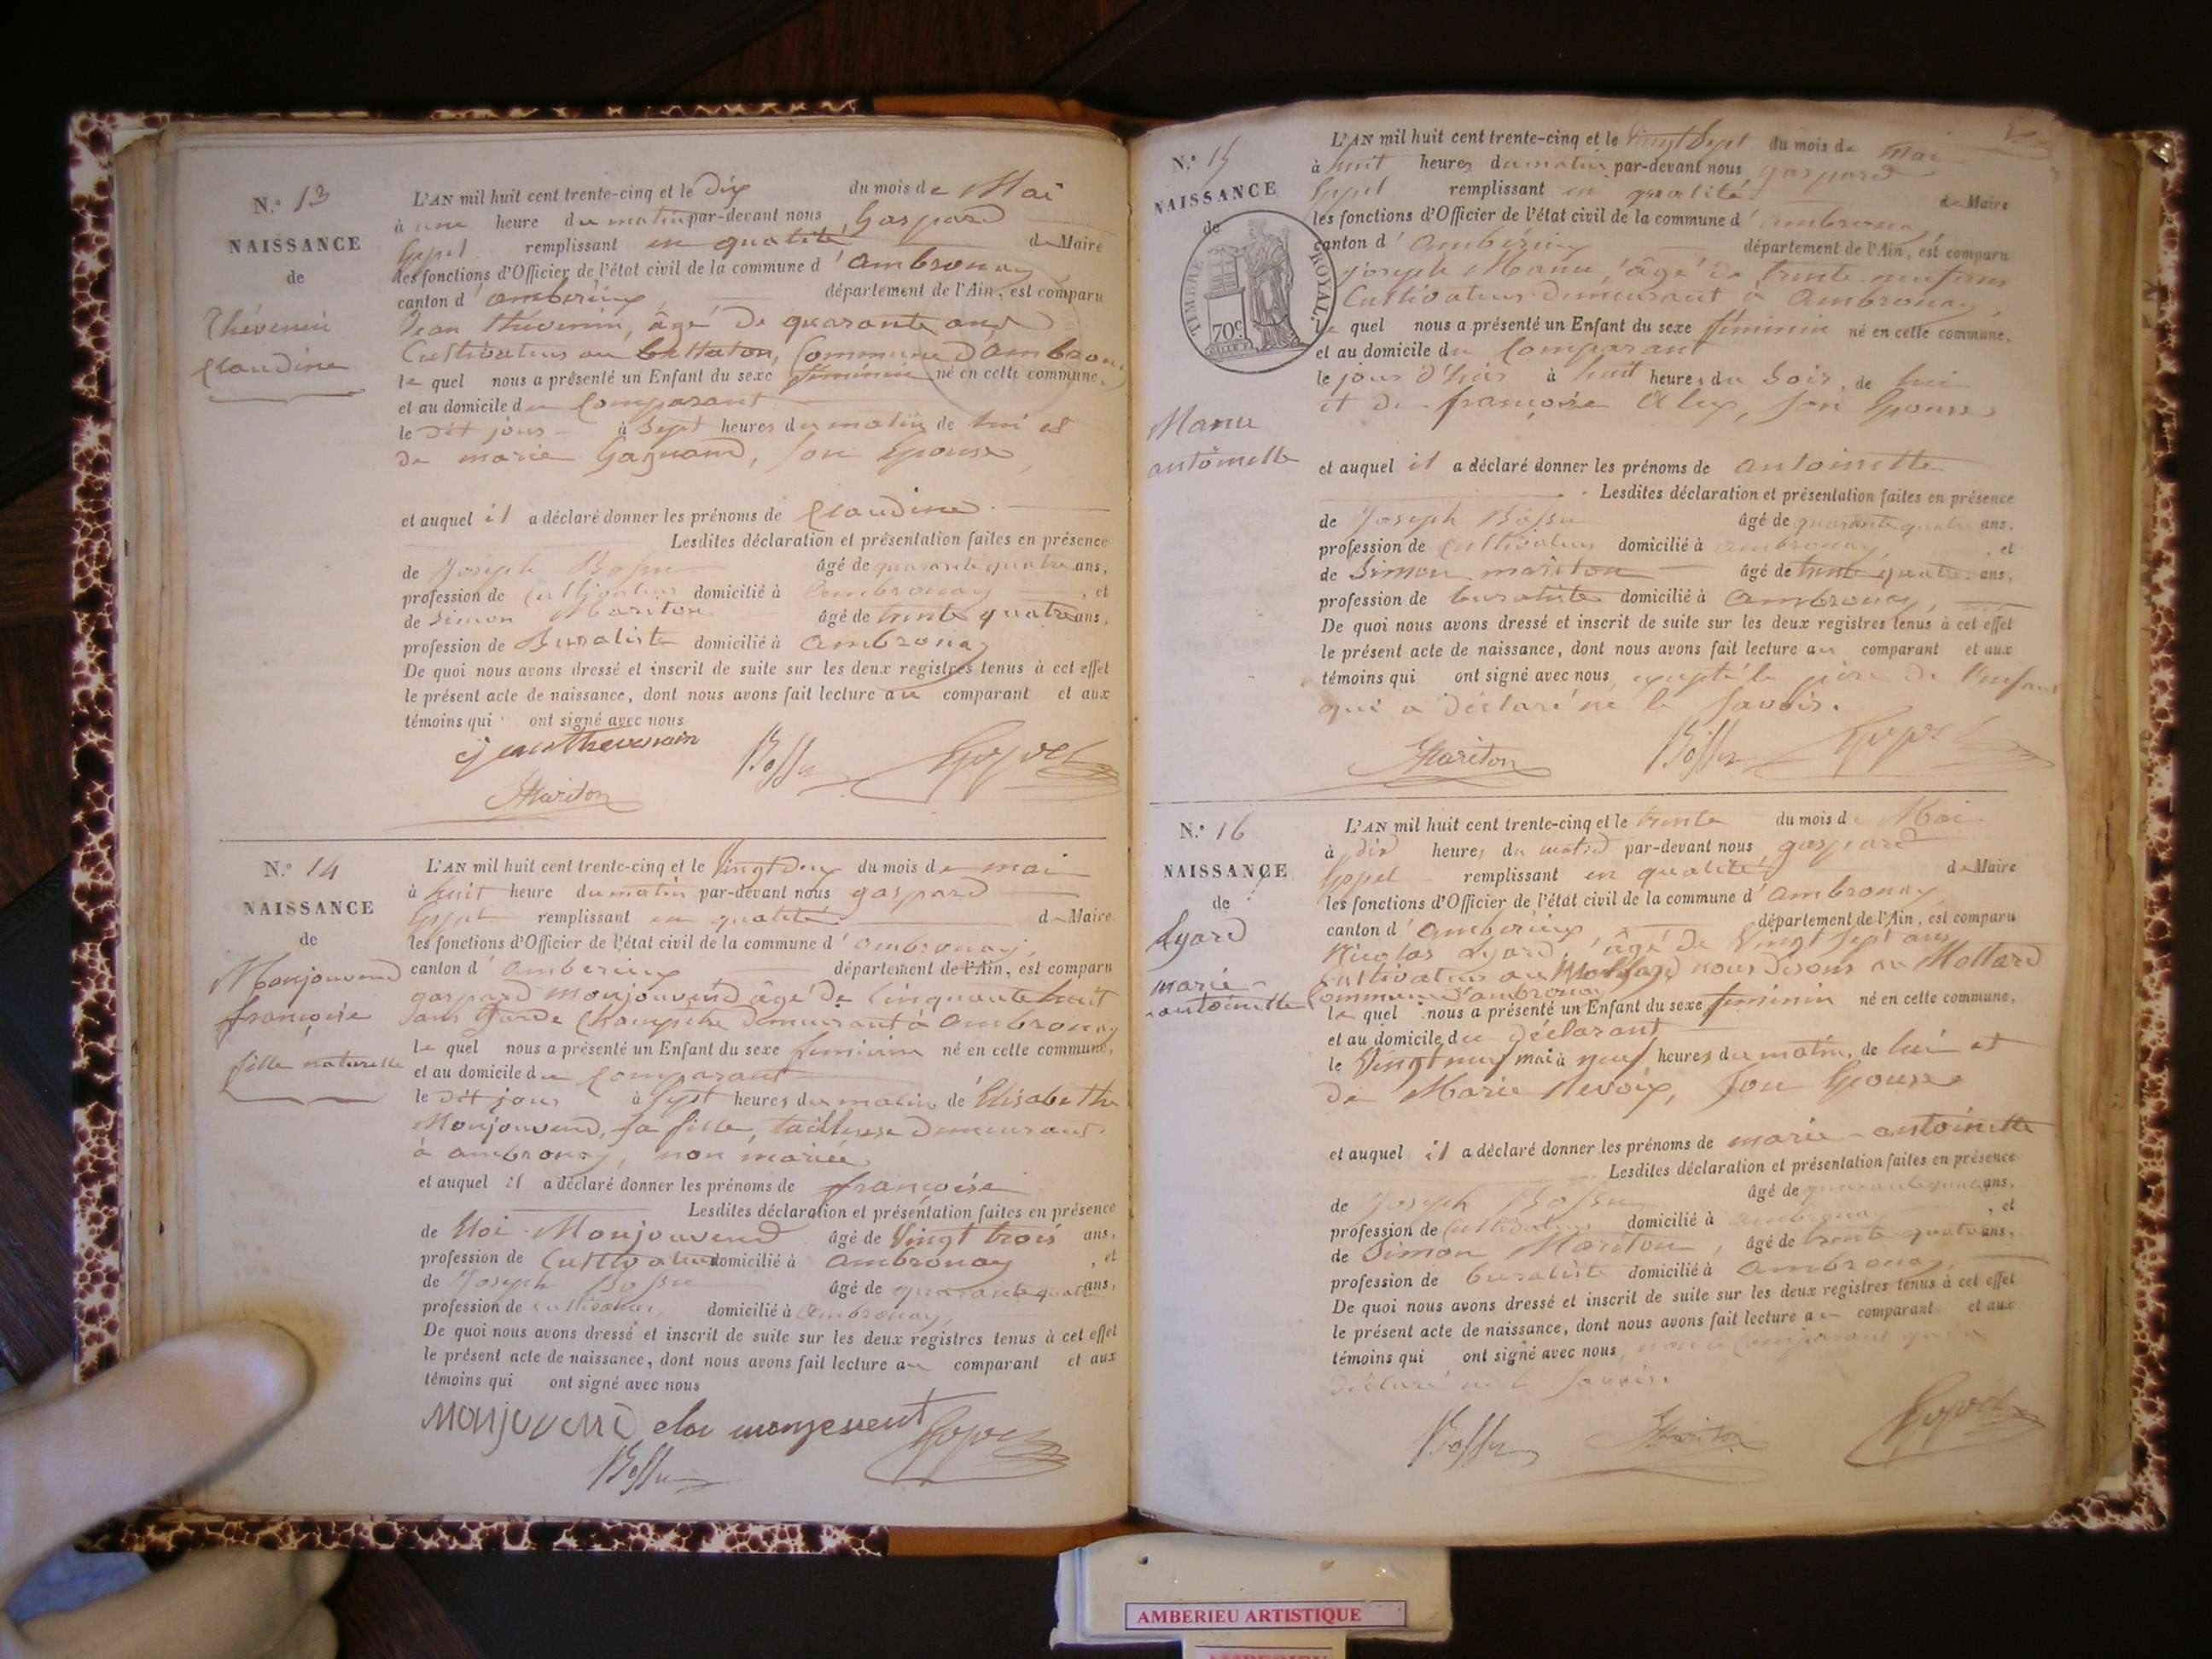 N.º 13
NAISSANCE
de
Thévenin
Claudine
L'AN mil huit cent trente-cinq et le dix du mois de Mai
à une heure du matin par-devant nous Gaspard
remplissant en qualité de Maire
les fonctions d'Officier de l'état civil de la commune d'ambronay
canton d'amberieux, département de l'Ain, est comparu
Jean thévenin, âgé de quarante ans
Cultivateur au Commune d'ambronay
le quel nous a présenté un Enfant du sexe féminin né en cette commune,
et au domicile du Comparant
le dit jour à Sept heures du matin de lui et
de marie Gagnand, son Epouse
et auquel il a déclaré donner les prénoms de Claudine
Lesdites déclaration et présentation faites en présence
de Joseph Bossu âgé de quarante quatre ans,
profession de Cultivateur domicilié à Ambronay, et
de Simon Mariton âgé de trente quatre ans,
profession de Buraliste domicilié à Ambronay
De quoi nous avons dressé et inscrit de suite sur les deux registres tenus à cet effet
le présent acte de naissance, dont nous avons fait lecture au comparant et aux
témoins qui ont signé avec nous
jean thevenain Bossu
Mariton
N.º 14
NAISSANCE
de
Monjouvend
françoise
fille naturelle
L'AN mil huit cent trente-cinq et le Vingt deux du mois de mai
à huit heure du matin par-devant nous gaspard
remplissant en qualité de Maire
les fonctions d'Officier de l'état civil de la commune d'ambronay,
canton d'amberieux département de l'Ain, est comparu
gaspard monjouvend âgé de Cinquante huit
ans Garde Champêtre demeurant à Ambronay
le quel nous a présenté un Enfant du sexe feminin né en cette commune,
et au domicile du Comparant
le dit jour à Sept heures du matin de Elisabeth
Monjouvend, sa fille, tailleuse demeurant
à ambronay, non mariée
et auquel il a déclaré donner les prénoms de françoise
Lesdites déclaration et présentation faites en présence
de Eloi Monjouvend âgé de Vingt trois ans,
profession de Cultivateur domicilié à Ambronay, et
de Joseph Bossu âgé de quarante quatre ans,
profession de cultivateur, domicilié à Ambronay,
De quoi nous avons dressé et inscrit de suite sur les deux registres tenus à cet effet
le présent acte de naissance, dont nous avons fait lecture au comparant et aux
témoins qui ont signé avec nous
Monjuvend eloi
Bossu
N.º 15
NAISSANCE
de
TIMBRE ROYAL
70 c
Manu
antoinette
L'AN mil huit cent trente-cinq et le Vingt Sept du mois de Mai
à huit heures du matin par-devant nous gaspard
remplissant en qualité de Maire
les fonctions d'Officier de l'état civil de la commune d'ambronay,
canton d'amberieux département de l'Ain, est comparu
Joseph Manu, âgé de trente neuf ans
Cultivateur demeurant à Ambronay,
le quel nous a présenté un Enfant du sexe féminin né en cette commune,
et au domicile du Comparant
le jour d'hier à huit heures du Soir, de lui
et de françoise Alex, son Epouse
et auquel il a déclaré donner les prénoms de antoinette
Lesdites déclaration et présentation faites en présence
de Joseph Bossu âgé de quarante quatre ans,
profession de cultivateur domicilié à ambronay, et
de Simon mariton âgé de trente quatre ans,
profession de buraliste domicilié à Ambronay,
De quoi nous avons dressé et inscrit de suite sur les deux registres tenus à cet effet
le présent acte de naissance, dont nous avons fait lecture au comparant et aux
témoins qui ont signé avec nous excepté le père de l'enfant
qui a déclaré ne le Savoir.
Mariton Bossu
N.º 16
NAISSANCE
de
Lyard
marie-
antoinette
L'AN mil huit cent trente-cinq et le trente du mois de Mai
à dix heures du matin par-devant nous gaspard
remplissant en qualité de Maire
les fonctions d'Officier de l'état civil de la commune d'ambronay
canton d'amberieux, département de l'Ain, est comparu
Nicolas Lyard, âgé de Vingt Sept ans
Cultivateur au nous disons au Mollard
Commune d'ambronay
le quel nous a présenté un Enfant du sexe féminin né en cette commune,
et au domicile du déclarant
le Vingt neuf mai à neuf heures du matin, de lui et
de Marie Nevoix, Son Epouse
et auquel il a déclaré donner les prénoms de marie-antoinette
Lesdites déclaration et présentation faites en présence
de Joseph Bossu âgé de quarante quatre ans,
profession de Cultivateur domicilié à ambronay, et
de Simon Mariton, âgé de trente quatre ans,
profession de buraliste domicilié à Ambronay,
De quoi nous avons dressé et inscrit de suite sur les deux registres tenus à cet effet
le présent acte de naissance, dont nous avons fait lecture au comparant et aux
témoins qui ont signé avec nous, non le Comparant qui a
déclaré ne le Savoir.
Bossu Mariton
AMBERIEU ARTISTIQUE